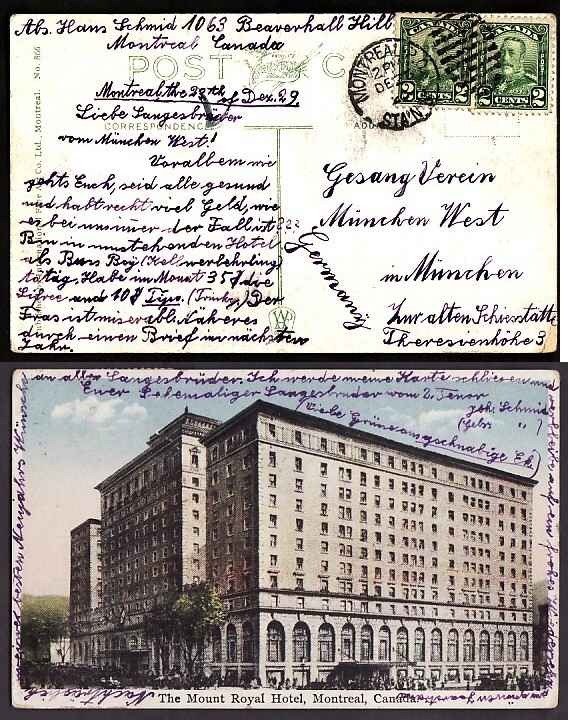 Abs. Hans Schmid 1063 Beaverhall Hill
Montreal Canada
POST
Montreal the 28th of Dez. 29
Liebe Sangesbrüder
CORRESPONDENCE
vom München West!
Vor allem wie
gehts Euch, seid alle gesund
und habt recht viel Geld, wie
es bei uns immer der Fall ist???
Bin in umstehenden Hotel
als Bus Boy (Kellnerlehrling
tätig. Habe im Monat 35$ die
Livree und 10$ Tips. (Trinkg) Der
Fras ist miserabl. Näheres
durch einen Brief im nächsten
Jahr.
No. 866
Co. Ltd., Montreal.
MONTREAL
2 PM
DE
STA'N
CANADA
2 CENTS 2
CANADA
2 CENTS 2
Gesang Verein
München West
in München
Zur alten Schiesstätte
Theresienhöhe 3
Germany
W
an alle Sangesbrüder. Ich werde meine Karte schliesen und
Euer Ehemaliger Sangesbruder vom 2. Tenor
Hs. Schmid
Liebe Grüse
verbleibe auf ein frohes Wiedersehen
besten Neujahrs Wünsche
Nachträglich
The Mount Royal Hotel, Montreal, Canada.